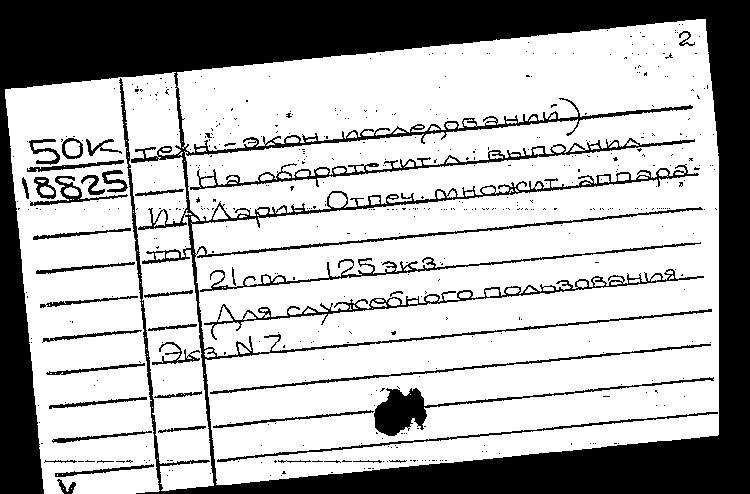 2
50К техн.-экон. исследований)
18825 На обороте тит. л.: выполнил
И.А. Ларин. Отпеч. множит. аппара-
том.
21 cm. 125 экз.
Для служебного пользования.
Экз. N 7.
V